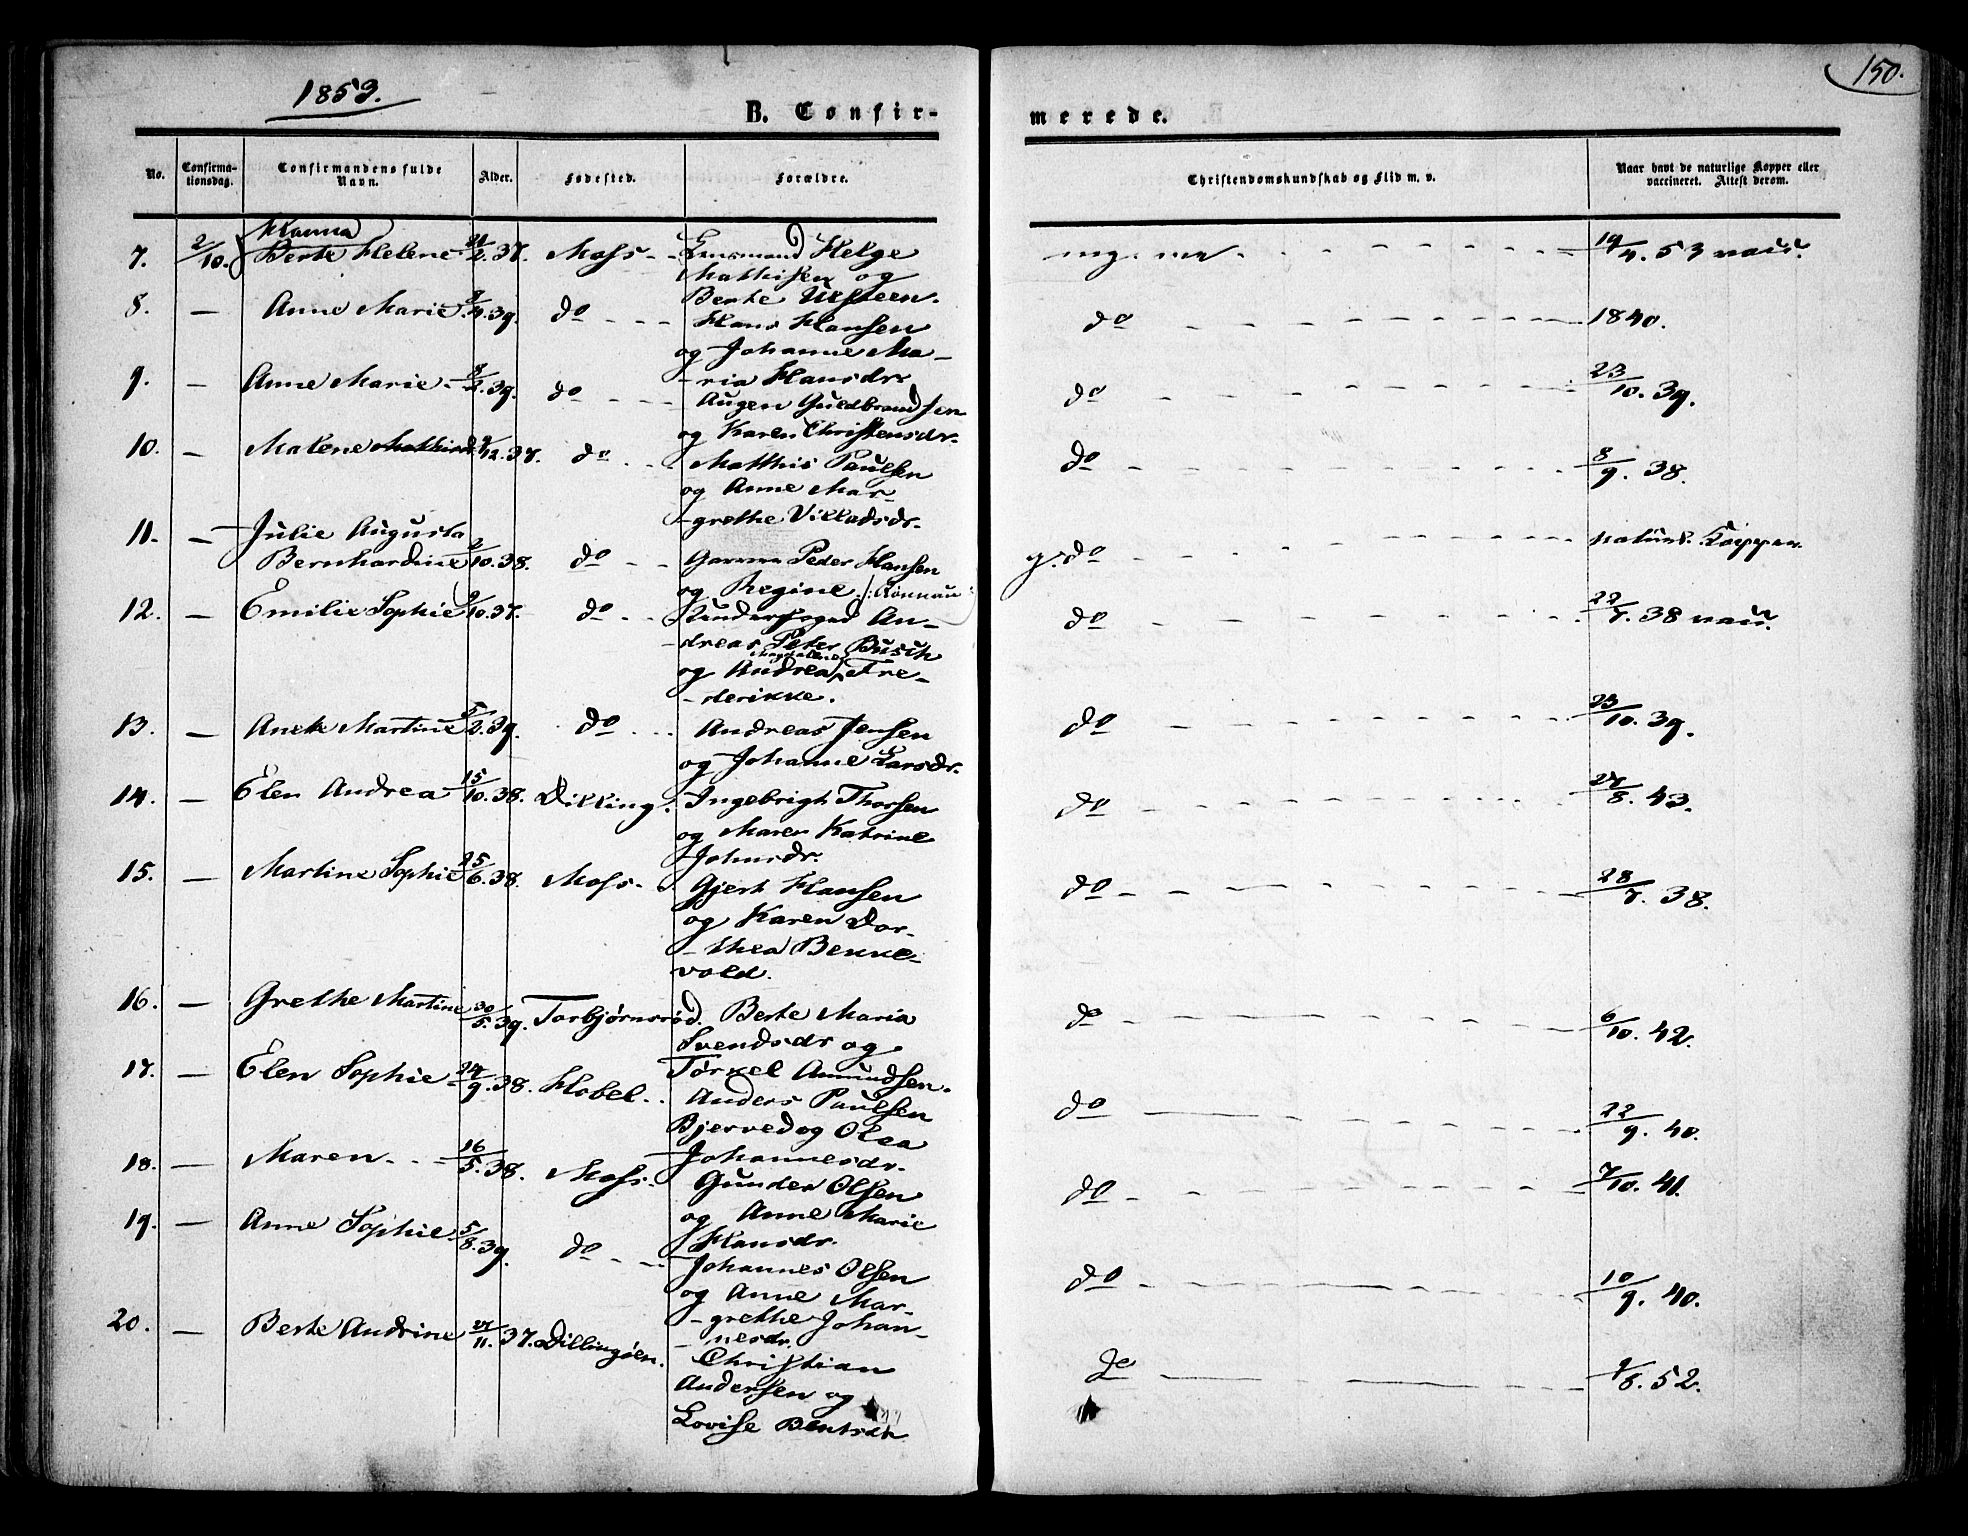 1853.
150.
B. Confirmerede.
No. Confirmationsdag. Confirmandens fulde Navn. Alder. Fødested. Forældre. Christendomskundskab og Flid m. v. Naar havt de naturlige Kopper eller vaccineret. Attest derom.
Hanna
7. 2/10. Berte Helene 2.37. Moss Helge
Mathisen og
Berte
mg. 19/4. 53
8. — Anne Marie 4.39. do Hans Hansen
og Johanne Ma-
-ria Hansdr
do 1840.
9. — Anne Marie 8/2.39. do Augen Guldbrandsen
og Karen Christensdr.
do 23/10. 39.
10. — Malene 12.37. do Matthis Paulsen
og Anne Mar-
-grethe Villadsdr.
do 8/9. 38.
11. — Julie Augusta
Bernhardine 2/10.38. do Peder Hansen
og Regine
g. do naturl. Kopper.
12. — Emilie Sophie 9/10.37. do An-
-dreas Peter Busch
og Andrea Magdalene Fre-
-derikke.
do 22/7. 38
13. — Anete Martine 5/2.39. do Andreas Jensen
og Johanne Larsdr.
do 23/10. 39.
14. — Elen Andrea 15/10.38. Dilling. Ingebrigt Thorsen
og Maren Katrine
Johnsdr.
do 27/8. 43.
15. — Martine Sophie 25/6.38. Moss. Gjert Hansen
og Karen Dor-
-thea Bekke-
vold.
do 28/7. 38.
16. — Grethe Martine 30/5.39. Torbjørnsrød. Berte Maria
Svendsdr og
Torkel Amundsen.
do 6/10. 42.
17. — Elen Sophie 27/9.38. Hobel. Anders Paulsen
Bjerved og Olea
Johannesdr.
do 22/9. 40.
18. — Maren 16/5.38. Moss. Gunder Olsen
og Anne Marie
Hansdr.
do 7/10. 41.
19. — Anne Sophie 5/8.39. do Johannes Olsen
og Anne Mar-
-grethe Johan-
-nesdr.
do 10/9. 40.
20. — Berte Andrine 27/11.37. Dillingøen. Christian
Andersen og
Lovise Bentsdr
do 9/8. 52.